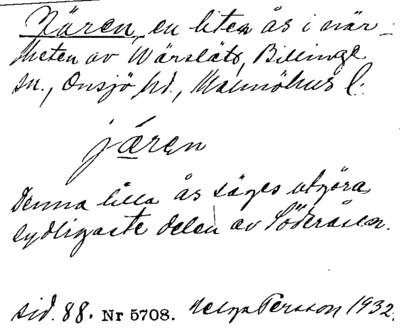 Kären, en liten ås i när-
heten av Wärslätt, Billinge
sn., Onsjö hd., Malmöhus l.
jären
Denna lilla ås säges utgöra
sydligaste delen av Söderåsen.
sid. 88. Nr 5708. Helga Persson 1932.